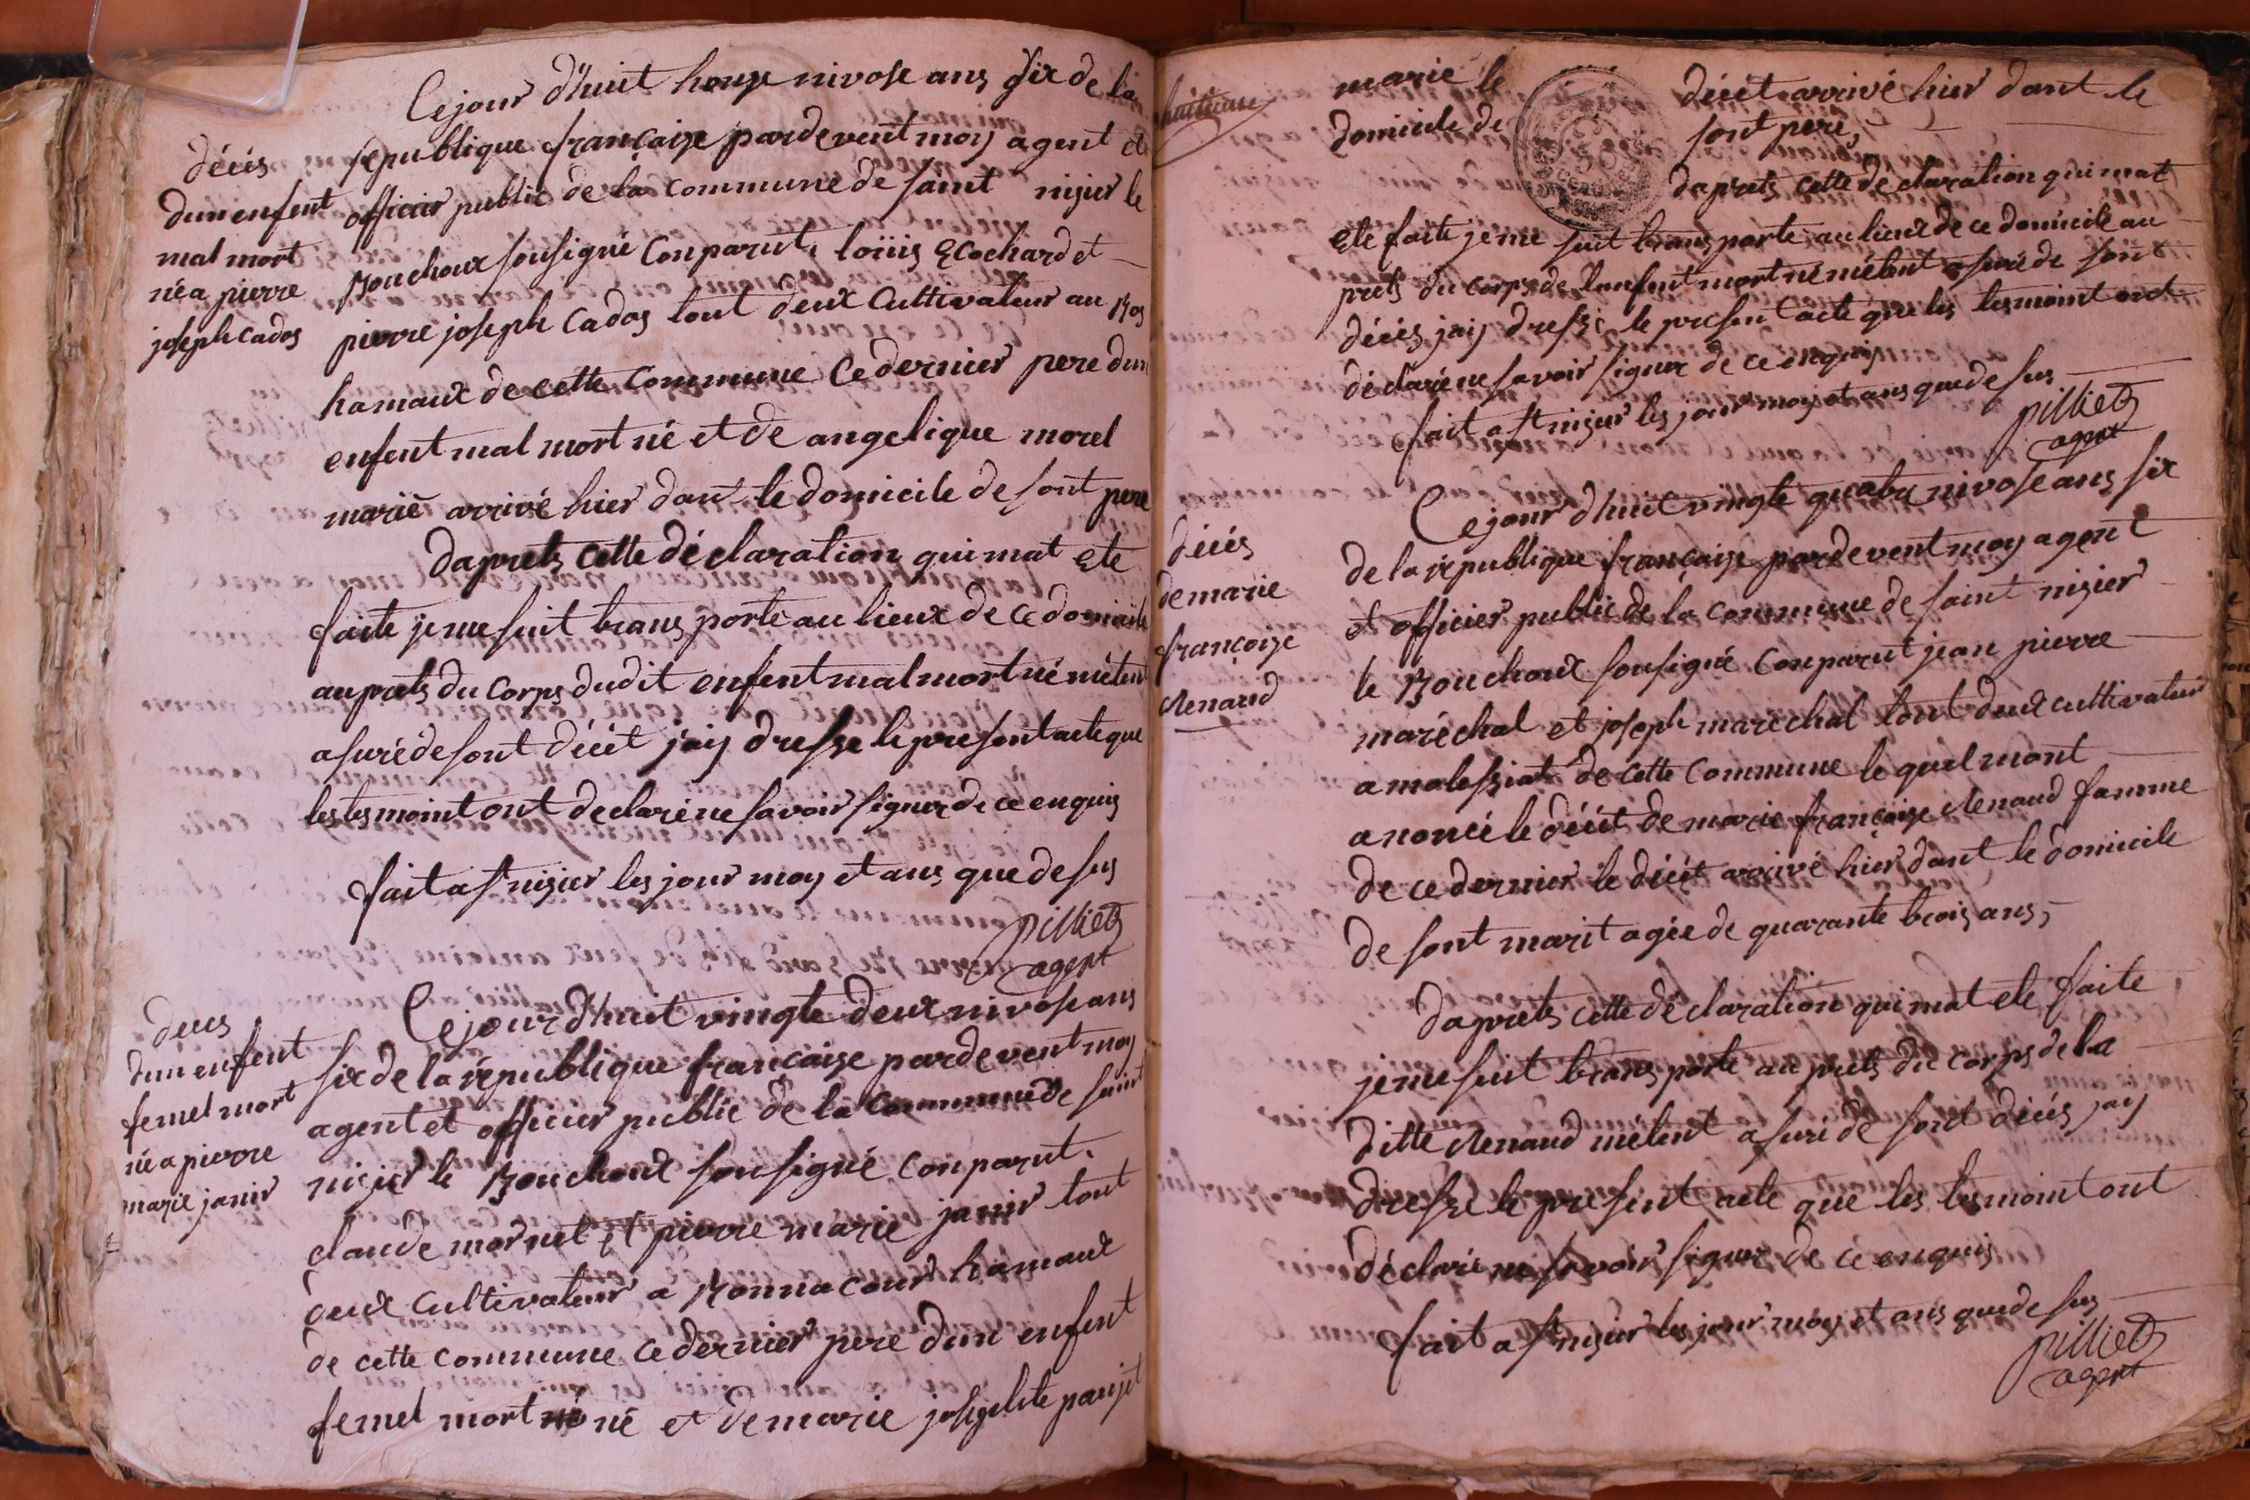 Cejour d'huit honze nivose ans six de la
décés
dun enfent
mal mort
né a pierre
joseph cados
republique françaize pardevent moy agent et
officier public de la commune de saint nizier le
Bouchoux sousigné Conparut. loüis Ecochard et
pierre joseph Cados tout deux Cultivateur au Bos
hamaux de cette commune Ce dernier pere dun
enfent mal mort né et de angelique morel
marié arrivé hier dant le domicile de sont pere
daprets cette déclaration qui mat ete
faite je me suit trans porté au lieux de ce domicile
auprets du Corps dudit enfent mal mort né métent
asuré de sont décét jaiy dresse le present acte que
les tesmoint ont declaré ne savoir signer de ce enquis
fait a st nizier les jour moy et ans que desus
pilliet
agent
deces
dun enfent
femel mort
né a pierre
marie janir
Cejour d'huit vingte deux nivose ans
six de la république françaize pardevent moy
agent et officier public de la commune de saint
nizier le Bouchoux sousigné Conparut.
claude mornet et pierre marie janir tout
deux Cultivateur a Bonnacour hamaux
de cette commune ce dernier pere dun enfent
femel mort né et de marie josephte panjet
huitieme
marie le décét arrivé hier dant le
domicile de sont pere,
daprets cette déclaration qui mat
ete faite je me suit trans porte au lieux de ce domicile au
prets du corps de lenfent mort né métent asuré de sont
décés jaiy dressé le present acte que les tesmoint ont
déclaré ne savoir signer de ce enquis
fait a st nizier les jour moy et ans que desus
pilliet
agent
décés
de marie
françoize
Renaud
Cejour d'huit vingte quatre nivose ans six
de la république françaize pardevent moy agent
et officier public de la commune de saint nizier
le Bouchoux sousigné Conparut jean pierre
maréchal et joseph marechal tout deux cultivateur
a malessiat de cette commune le quel mont
anoncé le décét de marie françoize Renaud famme
de ce dernier le décét arrivé hier dant le domicile
de sont marit agée de quarante trois ans,
daprets cette déclaration qui mat ete faite
je me suit trans porte auprets du corps de la
ditte Renaud métent asuré de sont décés jaiy
dresse le present acte que les tesmoint ont
déclaré ne savoir signer de ce enquis
fait a st nizier les jour moy et ans que desus
pilliet
agent